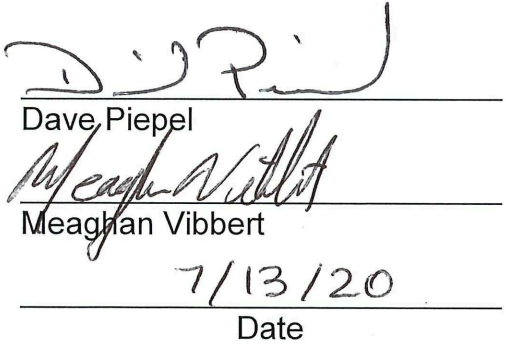 David Piepel
Dave Piepel
Meaghan Vibbert
Meaghan Vibbert
7/13/20
Date